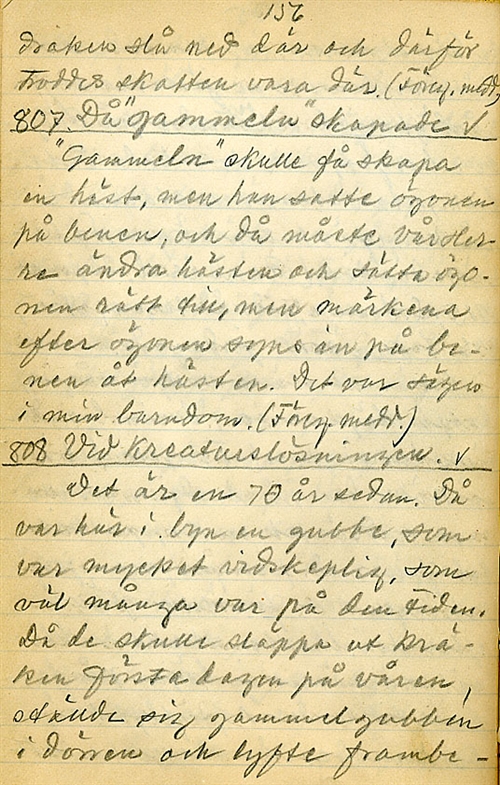 156
draken slå ned där och därför
troddes skatten vara där. (Föreg. medd.)
807. Då "gammeln" skapade √
"Gammeln" skulle få skapa
en häst, men han satte ögonen
på benen, och då måste Vår Her-
re ändra hästen och sätta ögo-
nen rätt till, men märkena
efter ögonen syns än på be-
nen åt hästen. Det var sägen
i min barndom. (Föreg. medd.)
808 Vid kreaturslösningen. √
Det är en 70 år sedan. Då
var här i byn en gubbe, som
var mycket vidskeplig, som
väl många var på den tiden.
Då de skulle släppa ut krä-
ken första dagen på våren,
ställde sig gammelgubben
i dörren och lyfte frambe-